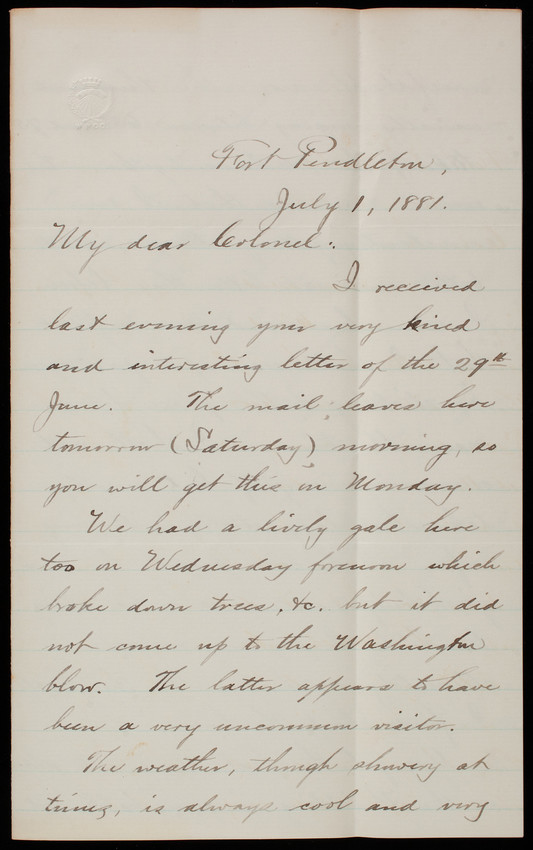 Fort Pendleton,
July 1, 1881.
My dear Colonel:
I received
last evening your very kind
and interesting letter of the 29th
June. The mail leaves here
tomorrow (Saturday) morning, so
you will get this on Monday.
We had a lively gale here
too on Wednesday forenoon which
broke down trees, &c. but it did
not come up to the Washington
blow. The latter appears to have
been a very uncommon visitor.
The weather, though showery at
times, is always cool and very